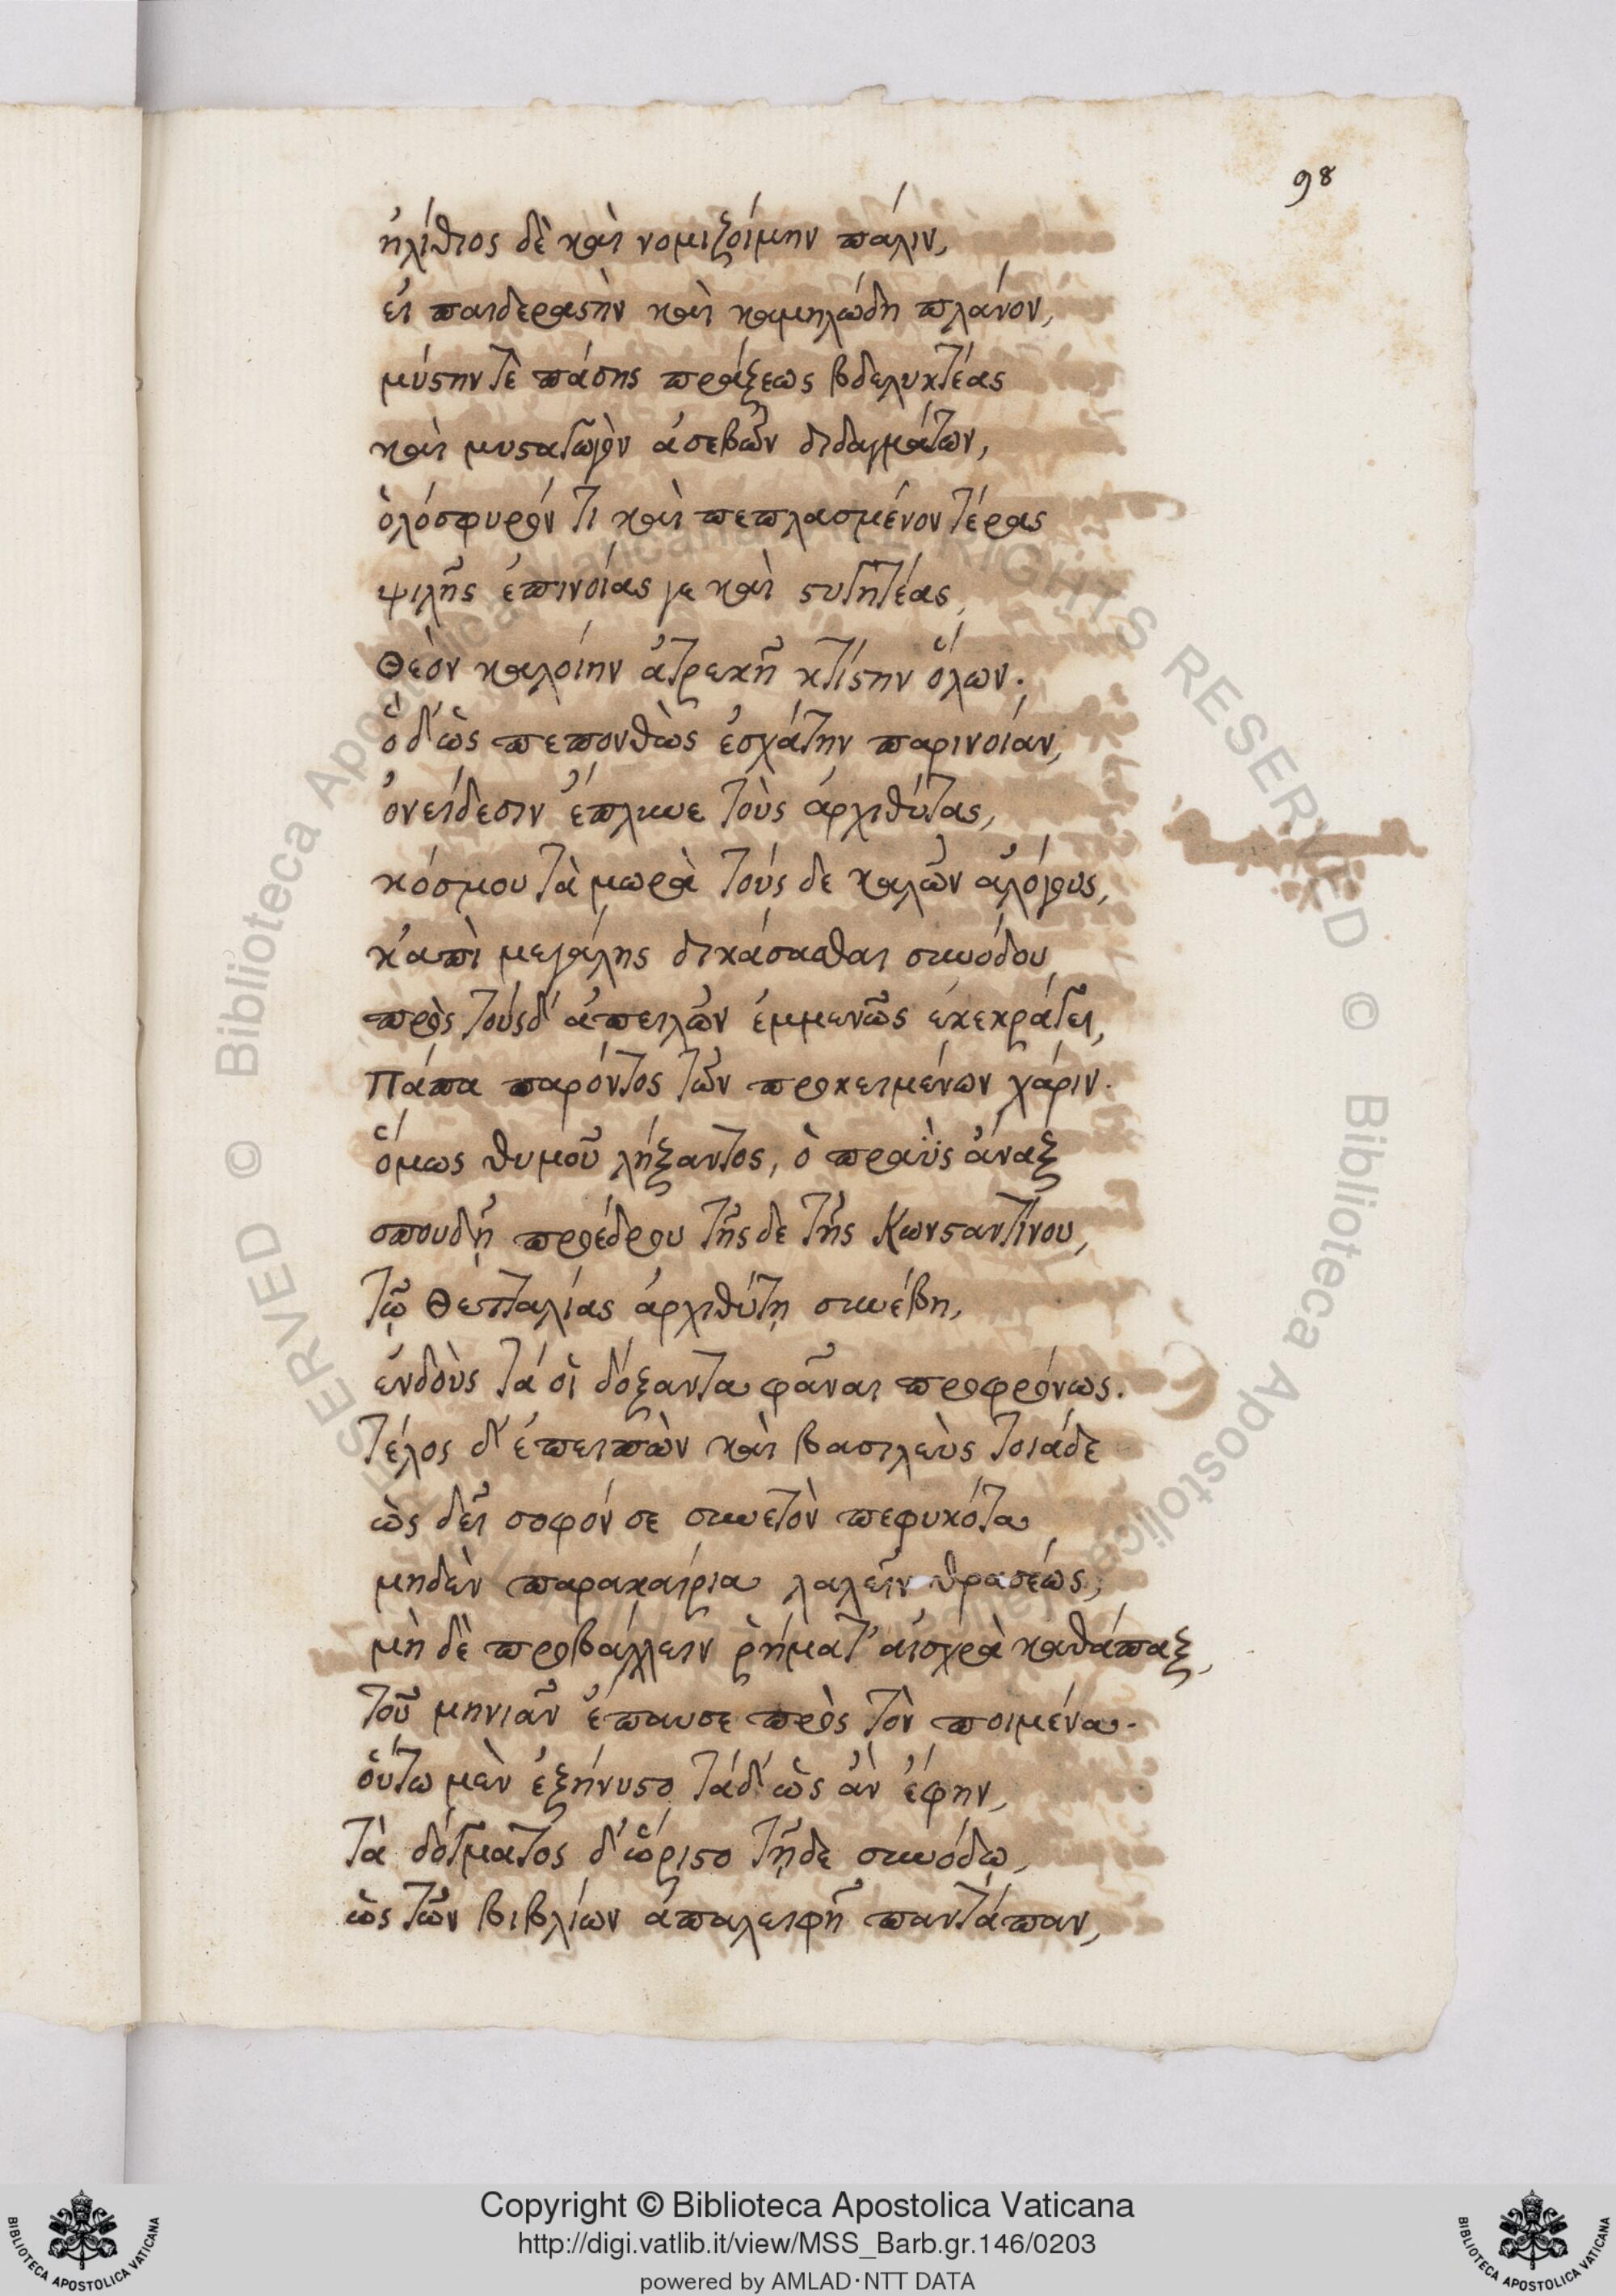 98
ἠλίθιος δὲ καὶ νομιζοίμην πάλιν,
εἰ παιδεραστὴν καὶ καμηλώδη πλάνον,
μύστην τὲ πάσης πράξεως βδελυκτέας
καὶ μυσταγωγὸν ἀσεβῶν διδαγμάτων,
ὁλόσφυρόν τι καὶ πεπλασμένον τέρας
ψιλῆς ἐπινοίας γε καὶ στυγητέας,
Θεὸν καλοίην ἀτρεκῆ κτίστην ὅλων.
ὁ δ' ὡς πεπονθὼς ἐσχάτην παρινοίαν,
ὀνείδεσιν ἔπλυνε τοὺς ἀρχιθύτας,
κόσμου τὰ μωρὰ τούς δε καλῶν ἀλόγους,
κἀπὶ μεγάλης δικάσασθαι συνόδου
πρὸς τούσδ' ἀπειλῶν ἐμμενῶς ἐκεκράγει,
Πάπα παρόντος τῶν προκειμένων χάριν.
ὅμως θυμοῦ λήξαντος, ὁ πραῢς ἄναξ
σπουδῇ προέδρου τῆς δε τῆς Κωνσταντίνου,
τῷ Θετταλίας ἀρχιθύτῃ συνέβη,
ἐνδοὺς τά οἱ δόξαντα φᾶναι προφρόνως.
τέλος δ' ἐπειπὼν καὶ βασιλεὺς τοιάδε
ὡς δεῖ σοφόν σε συνετὸν πεφυκότα
μηδὲν παρακαίρια λαλεῖν θρασέως,
μὴ δὲ προβάλλειν ῥήματ' αἰσχρὰ καθάπαξ,
τοῦ μηνιᾶν ἔπαυσε πρὸς τὸν ποιμένα.
οὕτω μὲν ἐξήνυστο τάδ' ὡς ἂν ἔφην,
τὰ δόγματος δ' ὥριστο τῇδε συνόδῳ,
ὡς τῶν βιβλίων ἀπαλειφῆ παντάπαν,
© Biblioteca Apostolica Vaticana ALL RIGHTS RESERVED
Copyright © Biblioteca Apostolica Vaticana
http://digi.vatlib.it/view/MSS_Barb.gr.146/0203
powered by AMLAD·NTT DATA
BIBLIOTECA APOSTOLICA VATICANA
BIBLIOTECA APOSTOLICA VATICANA